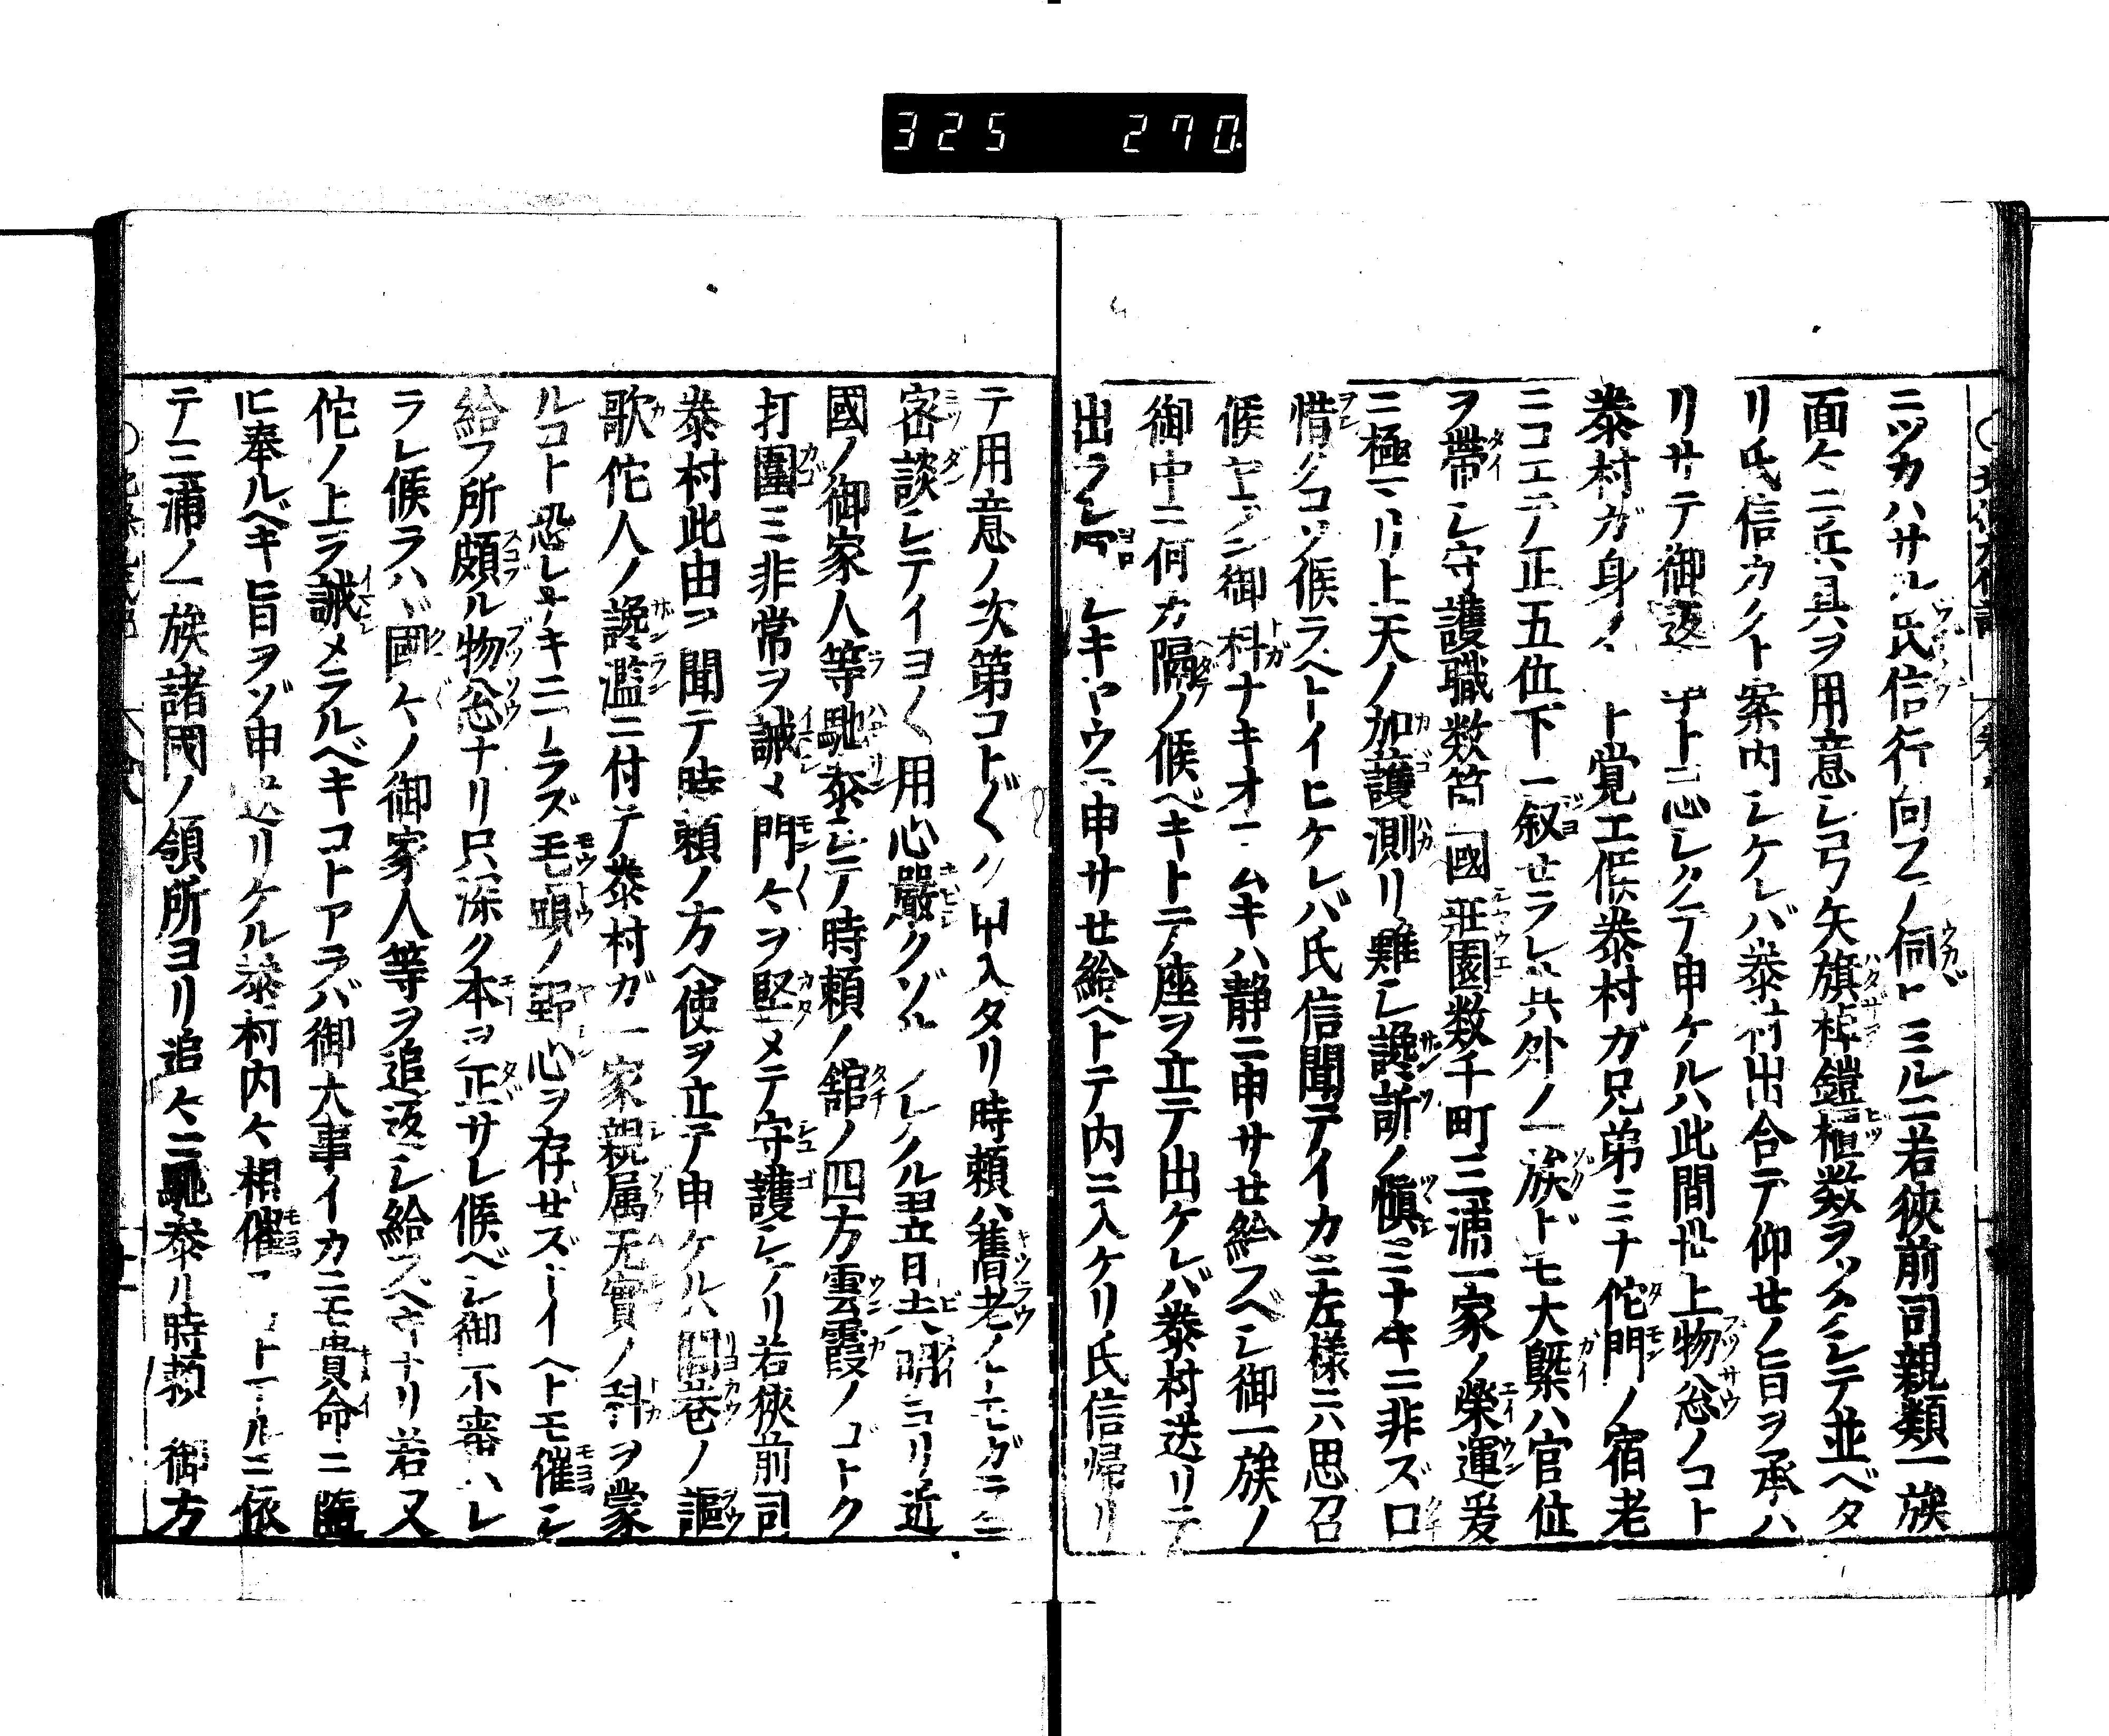 325 270
ニツカハサル氏信行向フノ伺ヒミルニ若狹前司親類一族
面々ニ兵具ヲ用意シ弓矢旗棹鎧櫃数ヲツクシテ並ベタ
リ氏信カクト案内シケレバ泰村出合テ仰せノ旨ヲ承ハ
リサテ御返 申ケルハ此間世上物忩ノコト
泰村ガ身ノ ト覚エ候泰村ガ兄弟ミナ佗門ノ宿老
ニコエテ正五位下ニ叙せラレ其外ノ一族ドモ大槩ハ官位
ヲ帶シ守護職数箇國莊園数千町三浦一家ノ榮運爰
ニ極マリ上天ノ加護測リ難シ讒訴ノ愼ミナキニ非ズロ
惜クコソ候ラヘトイヒケレバ氏信聞テイカニ左様ニハ思召
候 御科ナキオ ムキハ静ニ申サせ給フベシ御一族ノ
御中ニ何カ隔ノ候ベキトテ座ヲ立テ出ケレバ泰村送リテ
出ラレ レキヤウニ申サせ給ヘトテ内ニ入ケリ氏信帰リ
テ用意ノ次第コトゴトク申入タリ時頼ハ舊老ノトモガラニ
密談シテイヨ〱用心嚴クゾ 翌日 近
國ノ御家人等馳泰シテ時頼ノ舘ノ四方雲霞ノゴトク
打圍ミ非常ヲ誡メ門々ヲ堅メテ守護シケリ若狹前司
泰村此由ヲ聞テ時頼ノ方ヘ使ヲ立テ申ケルハ閭巷ノ謳
歌佗人ノ讒濫ニ付テ泰村ガ一家親属无實ノ科ヲ蒙
ルコト恐レナキニアラズ毛頭ノ野心ヲ存せズトイヘトモ催シ
給フ所頗ル物忩ナリ只深ク本ヲ正サレ候ベシ御不審ハレ
ラレ候ラハヾ國々ノ御家人等ヲ追返シ給フベキナリ若又
佗ノ上ヲ誡メラルベキコトアラバ御大事イカニモ貴命ニ隨
ヒ奉ルベキ旨ヲゾ申送リケル泰村内々相催 依
テ三浦ノ一族諸國ノ領所ヨリ追々ニ馳泰リ時頼 御方